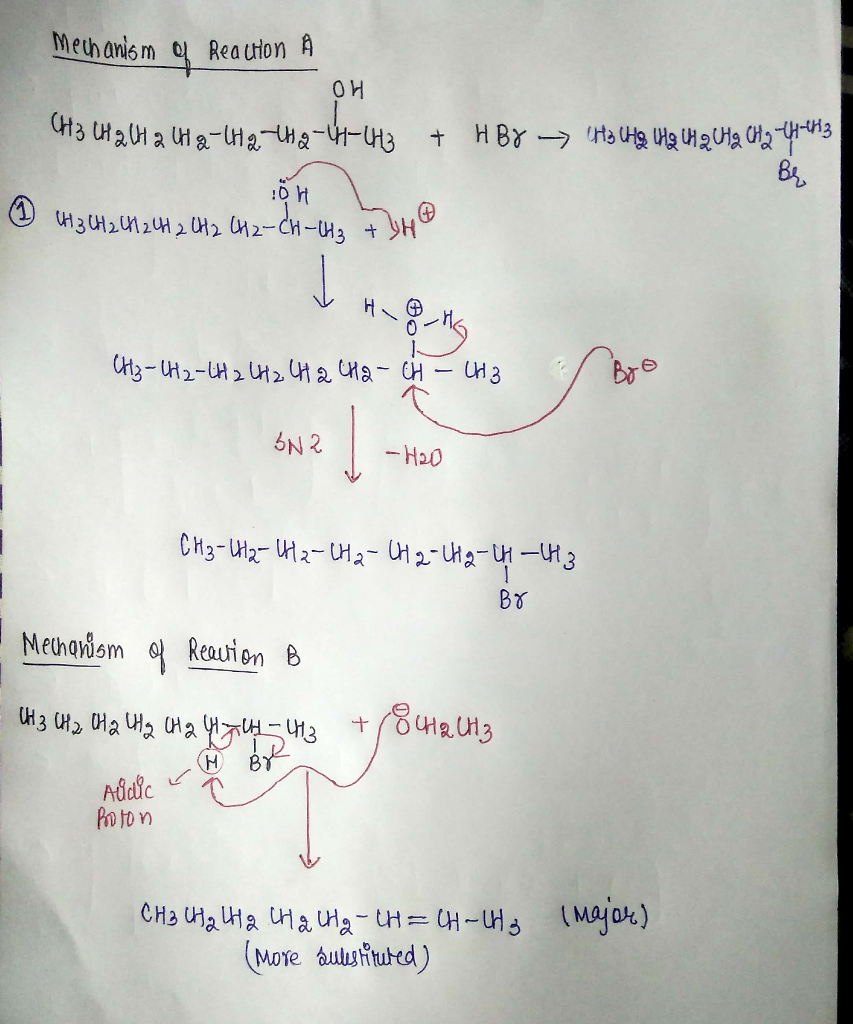 Mechanism of Reaction A
OH
CH3 CH2 CH2 CH2-CH2-CH2-CH-CH3 + HBr → CH3 CH2 CH2 CH2 CH2 CH2-CH-CH3
Br
:ÖH
① CH3 CH2 CH2 CH2 CH2 CH2-CH-CH3 + H⊕
H ⊕
O-H
CH3-CH2-CH2 CH2 CH2 CH2-CH-CH3 Br⊖
SN2 -H2O
CH3-CH2-CH2-CH2-CH2-CH2-CH-CH3
Br
Mechanism of Reaction B
CH3 CH2 CH2 CH2 CH2 CH-CH-CH3 + ⊖OCH2CH3
H Br
Acidic
Proton
CH3 CH2 CH2 CH2 CH2-CH=CH-CH3 (Major)
(More substituted)